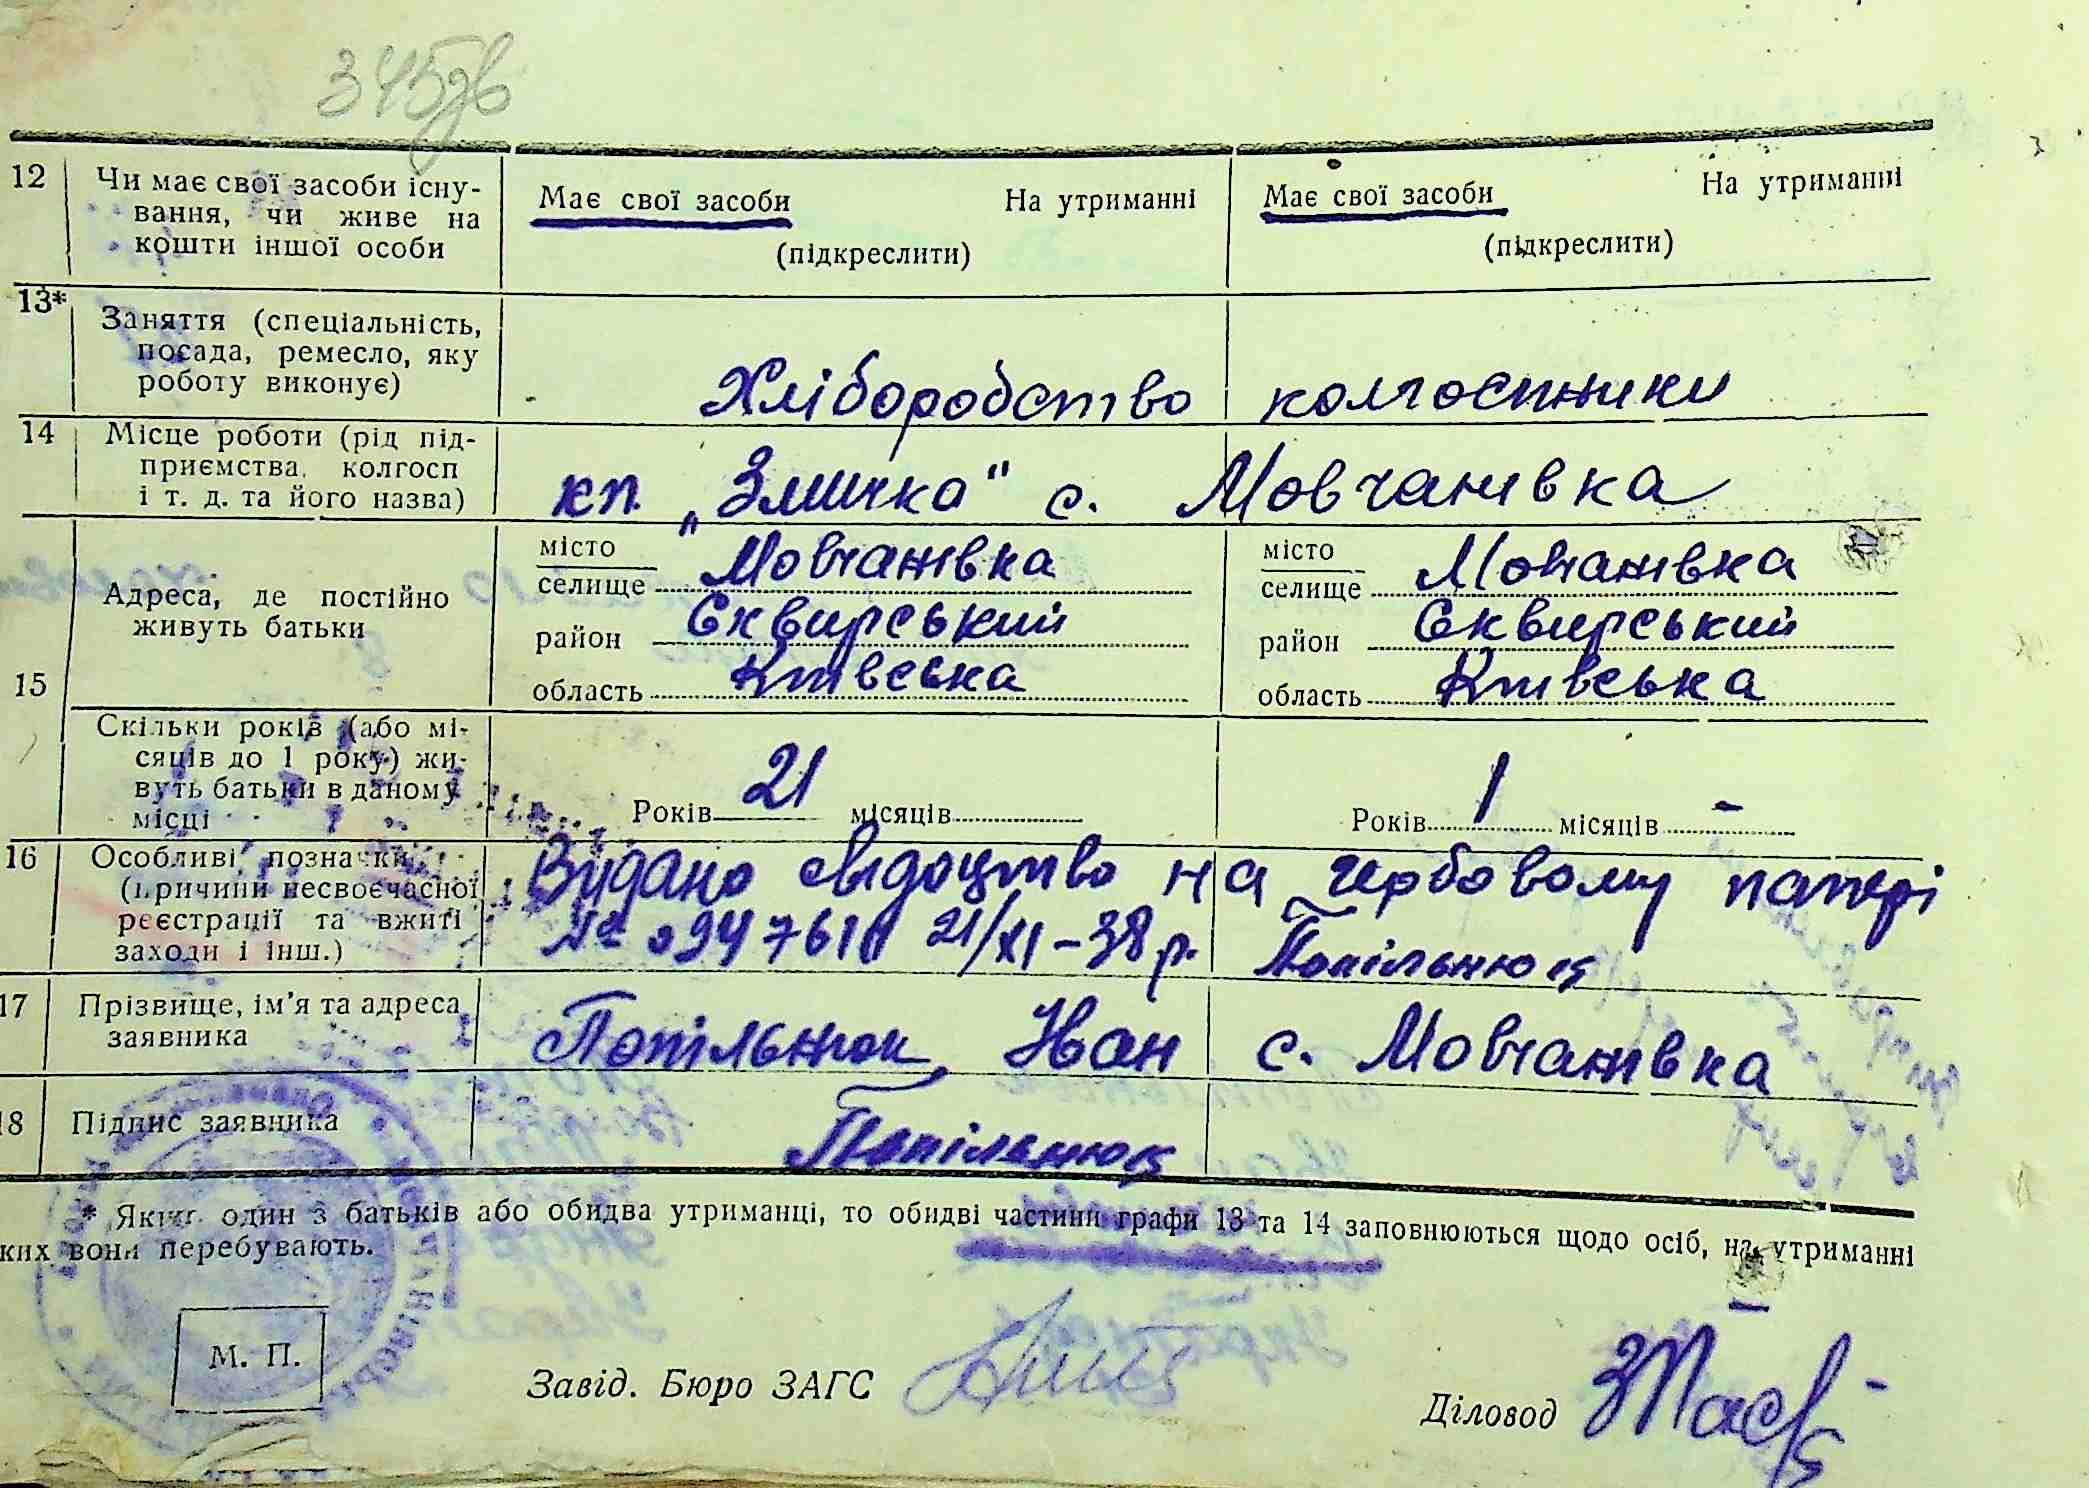 345зв
12 Чи має свої засоби існу-
вання, чи живе на
кошти іншої особи
Має свої засоби На утриманні
(підкреслити)
Має свої засоби На утриманні
(підкреслити)
13* Заняття (спеціальність,
посада, ремесло, яку
роботу виконує)
Хліборобство колгоспники
14 Місце роботи (рід під-
приємства, колгосп
і т. д. та його назва)
кп. „Змичка" с. Мовчанівка
15 Адреса, де постійно
живуть батьки
місто
селище Мовчанівка
район Сквирський
область Київська
місто
селище Мовчанівка
район Сквирський
область Київська
Скільки років (або мі-
сяців до 1 року) жи-
вуть батьки в даному
місці
Років 21 місяців
Років 1 місяців -
16 Особливі позначки
(причини несвоєчасної
реєстрації та вжиті
заходи і інш.)
Видано свідоцтво на гербовому папері
№ 21/XI-38 р. Попільнюк
17 Прізвище, ім'я та адреса
заявника
Попільнюк Іван с. Мовчанівка
18 Підпис заявника
Попільнюк
* Якщо один з батьків або обидва утриманці, то обидві частини графи 13 та 14 заповнюються щодо осіб, на утриманні
ких вони перебувають.
М. П.
Завід. Бюро ЗАГС
Діловод